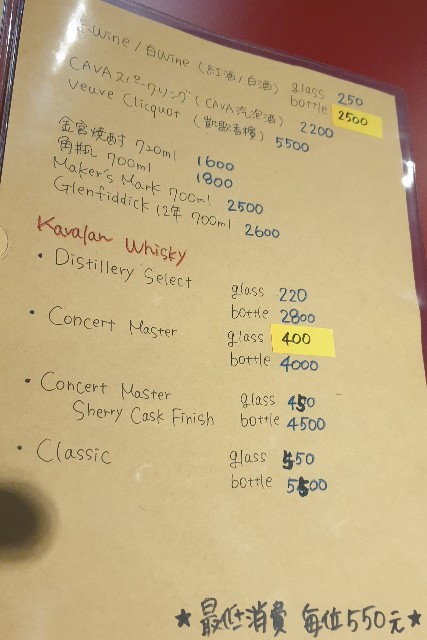 赤Wine / 白Wine (紅酒/白酒) glass 250
bottle 2500
CAVAスパークリング (CAVA汽泡酒) 2200
Veuve Clicquot (凱歌香檳) 5500
金宮焼酎 720ml 1600
角瓶 700ml 1800
Maker's Mark 700ml 2500
Glenfiddick 12年 700ml 2600
Kavalan Whisky
• Distillery Select glass 220
bottle 2800
• Concert Master glass 400
bottle 4000
• Concert Master glass 450
Sherry Cask Finish bottle 4500
• Classic glass 550
bottle 5500
★ 最低消費 每位550元 ★